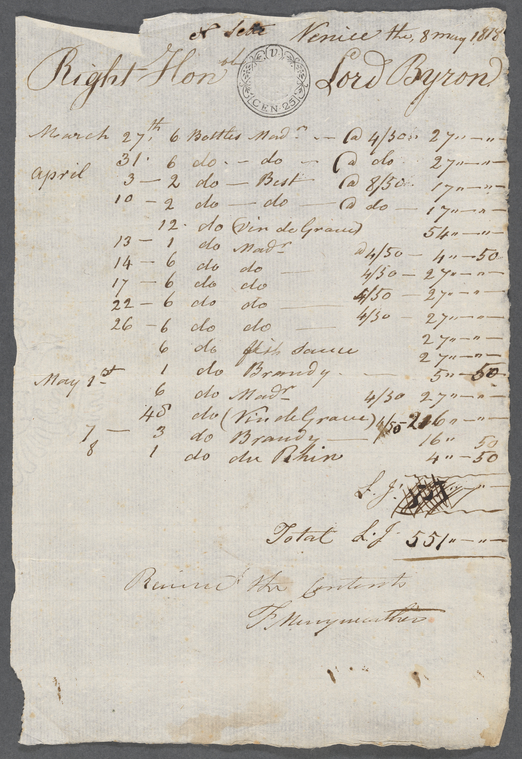 Venice the, 8 may 1818
Right Honble Lord Byron
V
CEN. 25
March 27th, 6 Bottles Madr. -- @ 4/50. 27"--"--
31. 6 do. -- do -- @ do. 27"--"--
April 3 - 2 do - Best @ 8/50. 17"--"--
10 - 2 do - do -- @ do -- 17"--"--
12. do (Vin de Grave) 54"--"--
13 - 1 do Madr @ 4/50 -- 4"--50
14 - 6 do do -- 4/50 -- 27"--"--
17 - 6 do do 4/50 -- 27"--"--
22 - 6 do do -- 4/50 -- 27"--"--
26 - 6 do do -- 27"--"--
6 do fish sauce 27"--"--
1 do Brandy. -- 5"--50
May 1st 6 do Madr 4/50 27"--"--
48 do (Vin de Grave) 4/50 216"--"--
7 -- 3 do Brandy -- 16" 50
8 1 do du Rhin 4"--50
L. J.
Total L. J. 551"--"--
the Contents